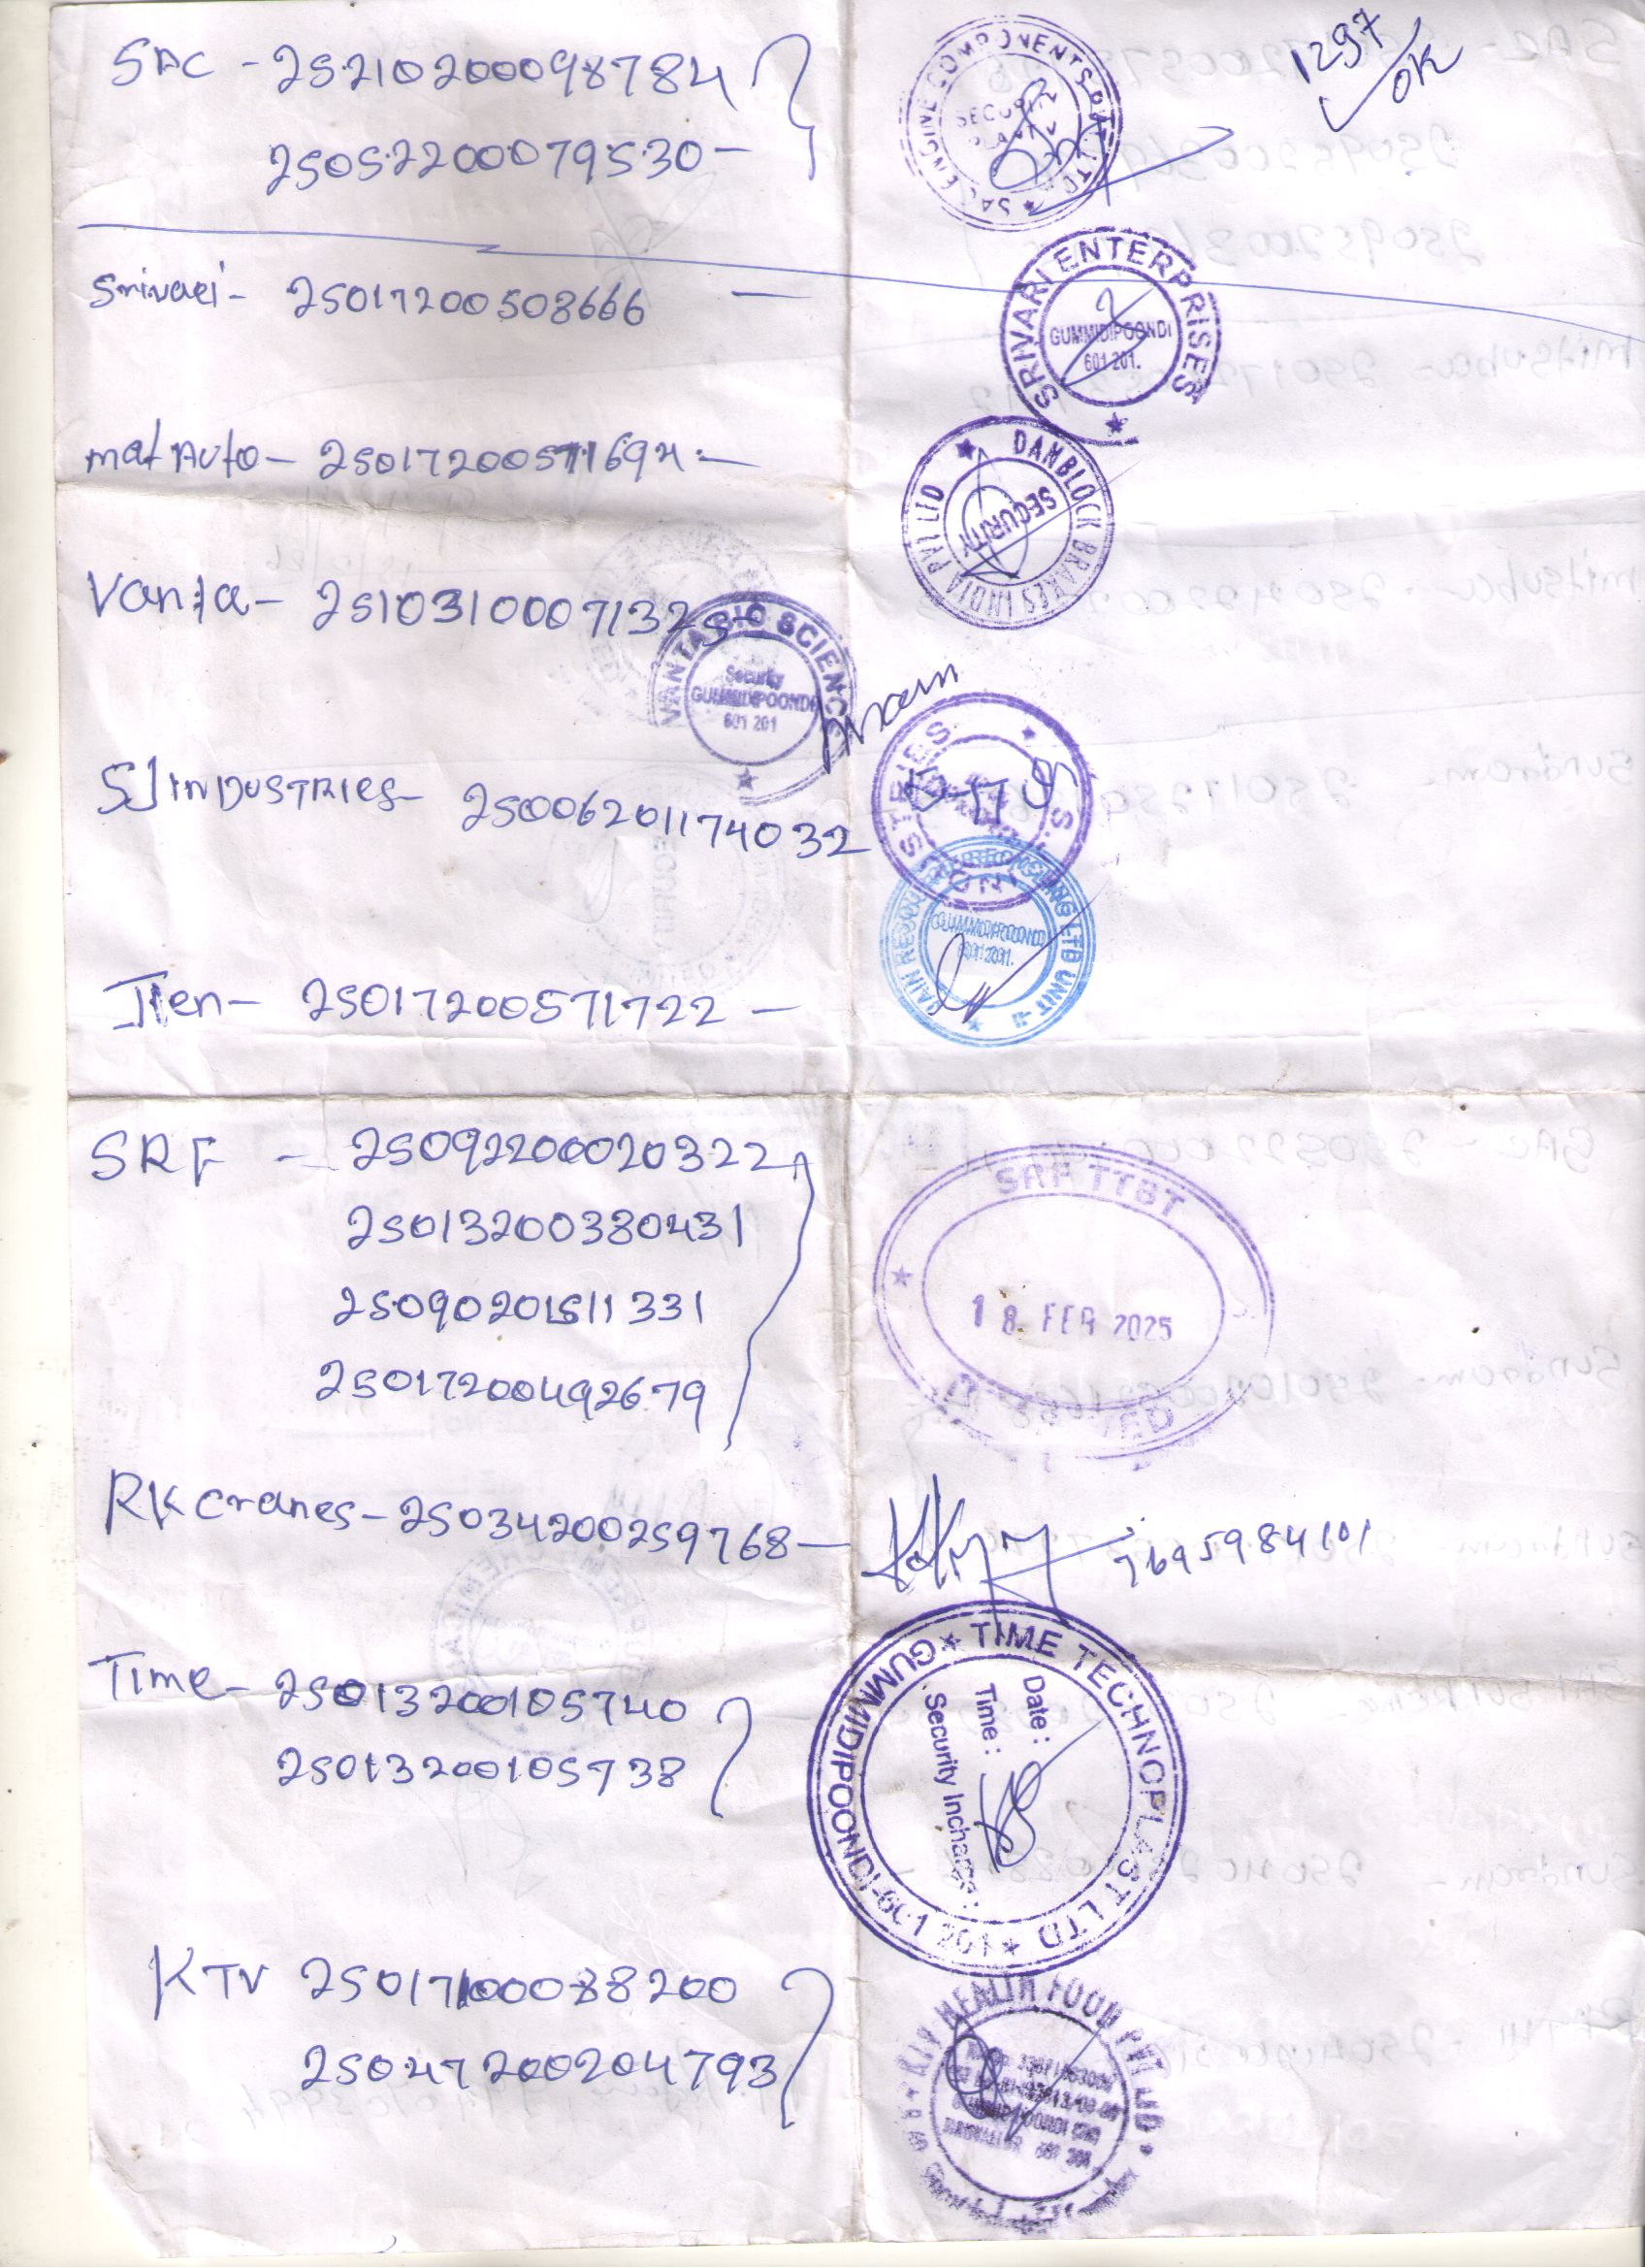 SAC - 25210200098784
250522000079530 -
SAC ENGINE COMPONENTS PVT LTD
SECURITY
1297
OK
Srivari - 25017200508666 -
SRIVARI ENTERPRISES
GUMMIDIPOONDI
601 201.
mat Auto - 250172005711694 -
DAMBLOCK BRAKES INDIA PVT LTD
SECURITY
Vanta - 25103100071325
VANTA BIO SCIENCE
Security
GUMMIDIPOONDI
601 201
SJ INDUSTRIES - 25006201174032
Jien - 25017200571722 -
JAIN RESOURCE RECYCLING LTD UNIT-II
GUMMIDIPOONDI
601 201.
SRF - 25092200020322
25013200380431
25090201511331
25017200492679
SRF TTBT
18. FEB 2025
RK cranes - 25034200259768 -
7695984101
Time - 25013200105740
25013200105738
TIME TECHNOPLAST LTD
GUMMIDIPOONDI-601 201
Date :
Time :
Security Incharge :
KTV 25017100088200
25047200204793
KTV HEALTH FOOD PVT LTD